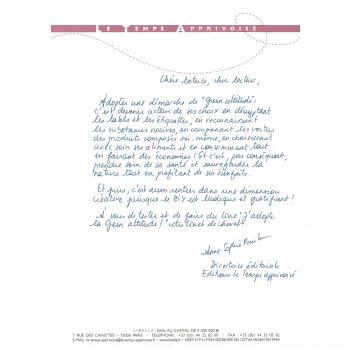 LE TEMPS APPRIVOISÉ
Chère lectrice, cher lecteur,
Adopter une démarche de "Green attitude",
c'est devenir acteur de ses choix en décryptant
les labels et les étiquettes, en reconnaissant
les substances nocives, en comparant les vertus
des produits composés soi-même, en choisissant
avec soin ses aliments et en consommant tout
en faisant des économies ! Et c'est, par conséquent,
prendre soin de sa santé et sauvegarder la
nature tout en profitant de ses bienfaits.
Et puis, c'est aussi rentrer dans une dimension
créative puisque le DIY est ludique et gratifiant !
À vous de tester et de faire du livre "J'adopte
la Green attitude !" votre livret de chevet !
Anne-Sophie
Directrice éditoriale
Editions le Temps apprivoisé
LIBELLA, SARL AU CAPITAL DE 5 000 000 €
7 RUE DES CANETTES - 75006 PARIS - TÉLÉPHONE : +33 (0)1 44 32 05 60 - FAX : +33 (0)1 44 32 05 62